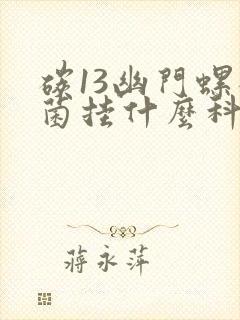 碳13幽門螺
菌挂什麼科
蔣永萍